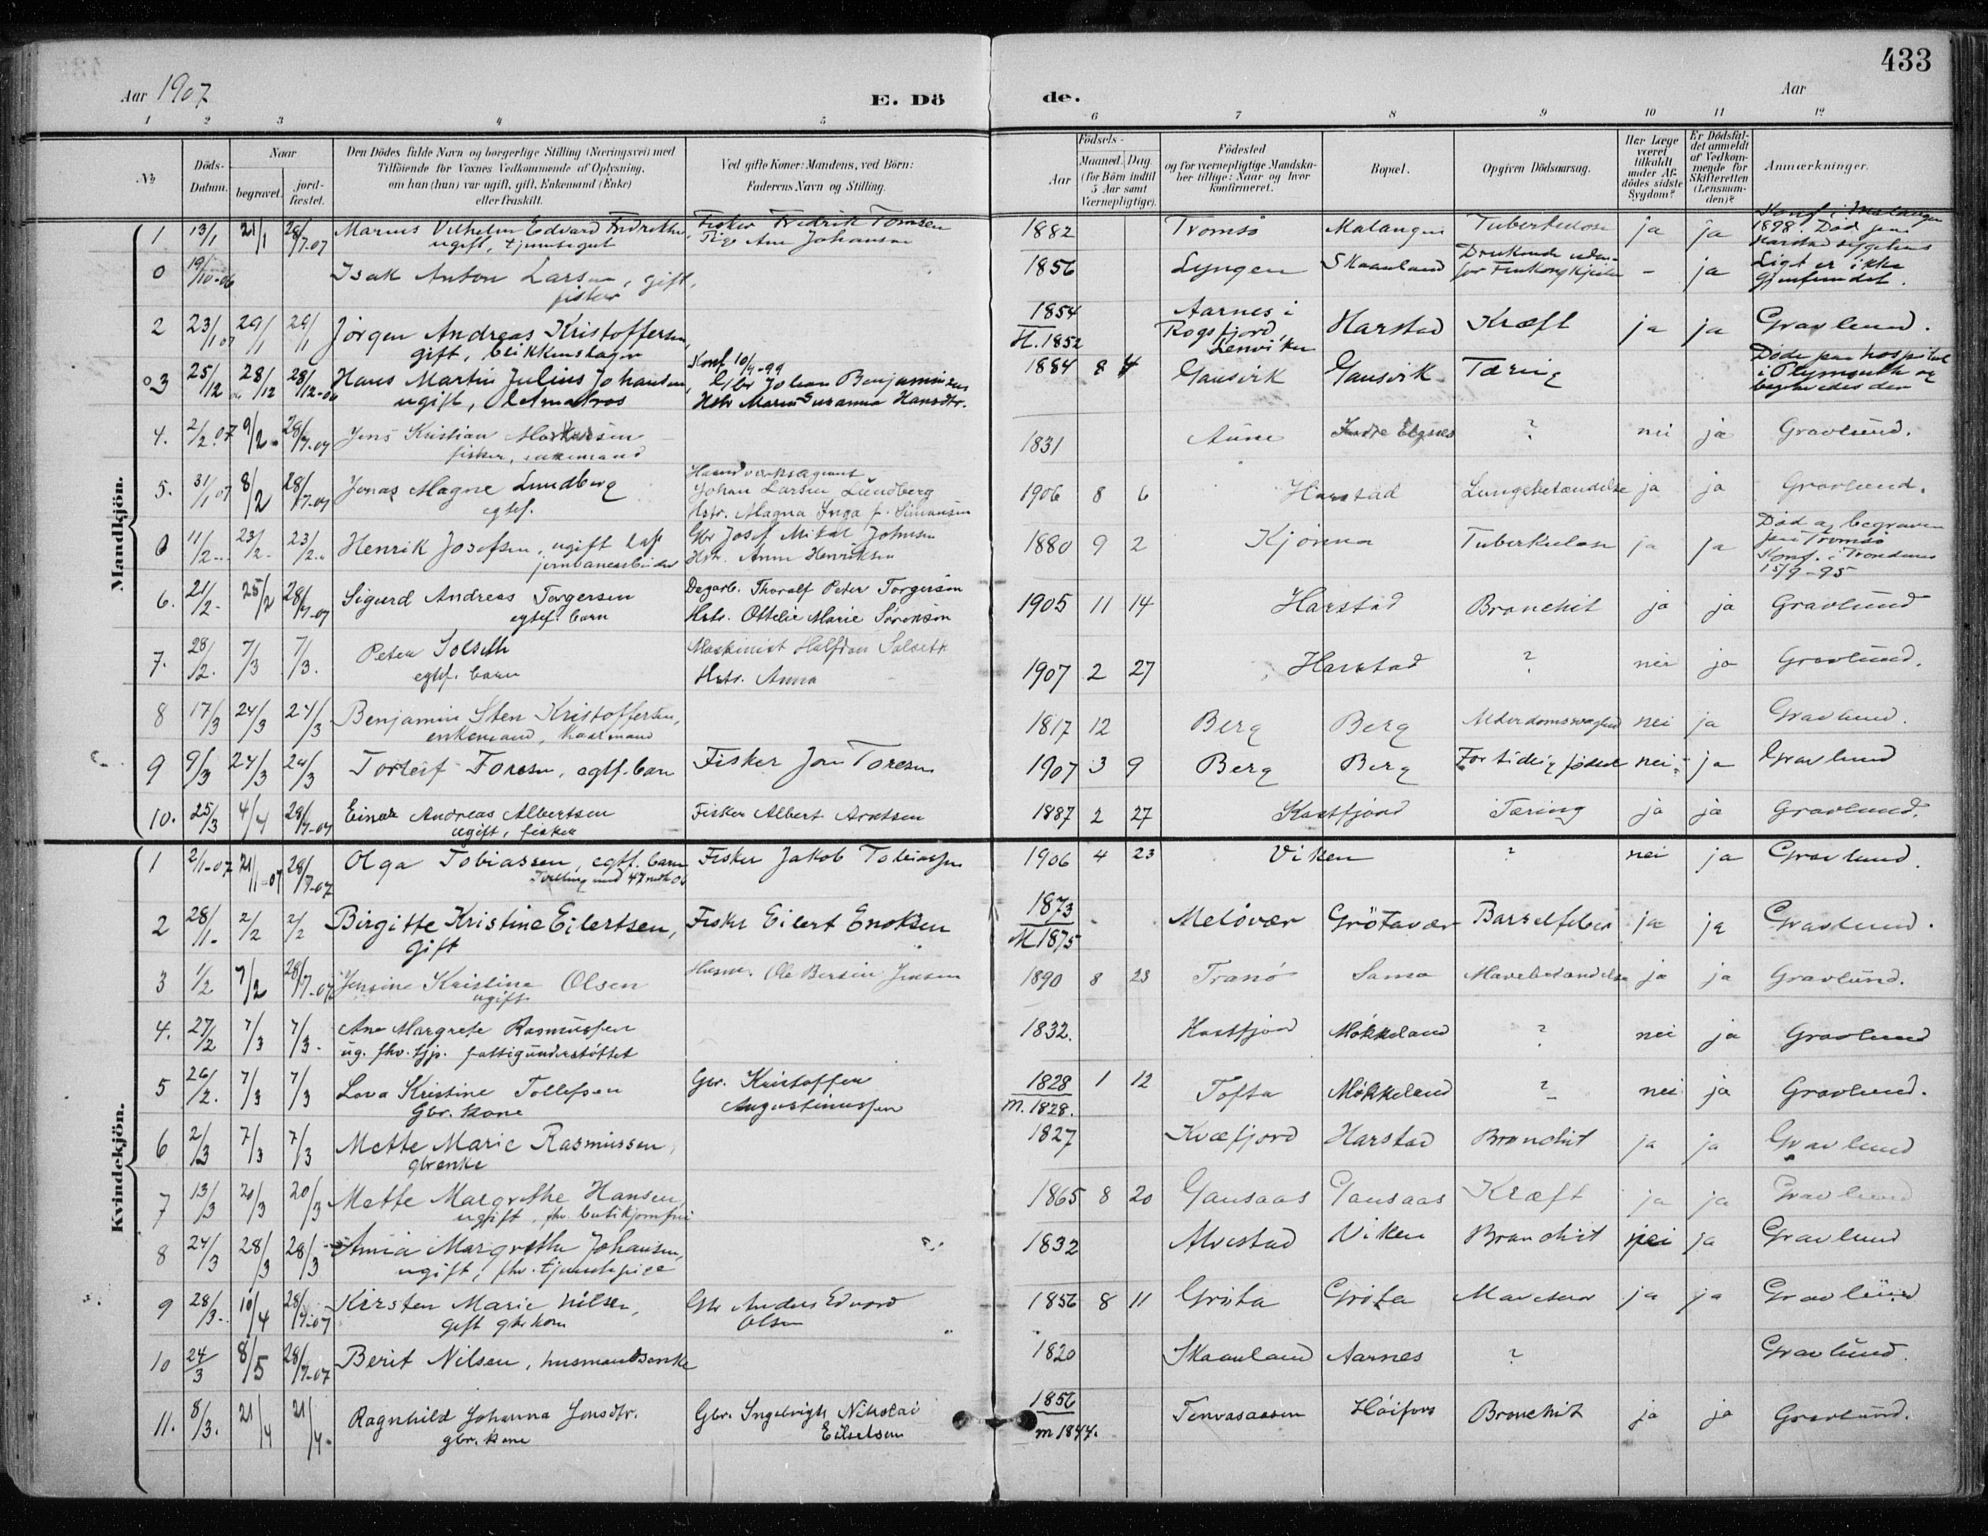 433
Aar 1907
E. Döde.
Aar
1 2 3 4 5 6 7 8 9 10 11 12
No
Döds-Datum.
Naar
begravet.
jord-fæstet.
Den Dödes fulde Navn og borgerlige Stilling (Næringsvei) med
Tilföiende for Voxnes Vedkommende af Oplysning,
om han (hun) var ugift, gift, Enkemand (Enke)
eller fraskilt.
Ved gifte Koner: Mandens, ved Börn:
Faderens Navn og Stilling.
Födsels-
Aar
Maaned. Dag
(for Börn indtil
5 Aar samt
Værnepligtige).
Födested
og for værnepligtige Mandska-
ber tillige: Naar og hvor
konfirmeret.
Bopæl.
Opgiven Dödsaarsag.
Har Læge
været
tilkaldt
under Af-
dödes sidste
Sygdom?
Er Dödsfal-
det anmeldt
af Vedkom-
mende for
Skifteretten
(Lensman-
den)?
Anmærkninger.
Mandkjön.
1 13/1 21/1 28/7-07 Marius Vilhelm Edvard Fisker Fredrik Tomsen 1882 Tromsö Malangen Tuberkulose ja ja Konf. i Malangen
ugift, Pige Ane Johansen 1898. Död paa
Harstad sygehus
0 19/10-06 Isak Anton Larsen, gift, 1856 Lyngen Skaanland Druknede - ja Liget er ikke
fisker gjenfundet.
2 23/1 07 29/1 29/1 Jörgen Andreas Kristoffersen 1854 Aarnes i Harstad Kræft ja ja Gravlund.
gift, blikkenslager H. 1852 Rogsfjord
Lenviken
3 25/12 28/12 28/12-06 Hans Martin Julius Johansen, Konf 10/9-99 1884 8 4 Gausvik Gausvik Tæring Döde paa hospital
ugift, Gbr Johan Benjaminsen i Plymouth og
Hstr Maren Susanna Hansdtr. begravedes der
4. 2/2 07 9/2 28/7-07 Jens Kristian 1831 Aune Indre Elgsnes ? nei ja Gravlund.
fisker, enkemand
5. 31/1 07 8/2 28/7-07 Jonas Magne Lundberg Haandverksagent 1906 8 6 Harstad Lungebetændelse ja ja Gravlund.
egtef. Johan Larsen Lundberg
Hstr. Magna Inga f. Simonsen
0 11/2 23/2 23/2 Henrik Josefsen, ugift Gbr Josef Mikal Johnsen 1880 9 2 Kjönna Tuberkulose ja ja Död og begraven
jernbanearbeider Hstr. Anne Henriksen paa Tromsö
Konf. i Trondenes
15/9-95
6. 21/2 25/2 28/7-07 Sigurd Andreas Torgersen Dagarb. Thoralf Peter Torgersen 1905 11 14 Harstad Bronchit ja ja Gravlund
egtef. barn Hstr. Ottelie Marie Sörensen
7. 28/2. 7/3 7/3. Peter Solseth Maskinist Halfdan Solseth 1907 2 27 Harstad ? nei ja Gravlund.
egtef. barn Hstr. Anna
8 17/3 24/3 24/3 Benjamin Sten Kristoffersen, 1817 12 Berg Berg Alderdomssvaghed nei ja Gravlund.
enkemand, kaarmand
9 9/3 24/3 24/3 Torleif Toresen, egtf. barn Fisker Jon Toresen 1907 3 9 Berg Berg For tidlig födsel nei ja Gravlund
10. 25/3 4/4 28/7-07 Einar Andreas Albertsen Fisker Albert Arntsen 1887 2 27 Kastfjord Tæring ja ja Gravlund.
ugift, fisker
Kvindekjön.
1 2/1-07 21/1-07 28/7-07 Olga Tobiassen, egtf. barn Fisker Jakob Tobiassen 1906 4 23 Viken ? nei ja Gravlund.
Tvilling med
2 28/1- 2/2 2/2 Birgitte Kristine Eilertsen, Fisker Eilert Enoksen 1873 Melövær Grötavær Barselfeber ja ja Gravlund.
gift M. 1875
3 1/2 7/2 28/7-07 Jensine Kristine Olsen Husm. Ole Bersin Jensen 1890 8 23 Tranö Sama Mavebetændelse ja ja Gravlund.
ugift
4. 27/2 7/3 7/3. Ane Margrete Rasmussen 1832. Kastfjord Mökkeland ? nei ja Gravlund
ug. fhv. tjp. fattigunderstöttet
5 26/2. 7/3 7/3 Lova Kristine Tollefsen Gbr. Kristoffer 1828 1 12 Tofta Mökkeland ? nei ja Gravlund.
Gbr. kone Augustinussen m. 1828.
6 2/3 7/3 7/3 Mette Marie Rasmussen, 1827 Kvæfjord Harstad Bronchit ja ja Gravlund
gbrenke
7 13/3 20/3 20/3 Mette Margrethe Hansen, 1865 8 20 Gausaas Gausaas Kræft ja ja Gravlund
ugift, fhv. butikjomfru
8 24/3 28/3 28/3 Anna Margrethe Johansen, 1832 Alvestad Viken Bronchit nei ja Gravlund
ugift, fhv. tjenestepige
9 28/3 10/4 28/7-07 Kirsten Marie Nilsen, Gbr Anders Edvard 1856 8 11 Gröta Gröta Mavesaar ja ja Gravlund
gift gbr kone Olsen
10 24/3 8/5 28/7-07 Berit Nilsen, husmandsenke 1820 Skaanland Aarnes ? Gravlund.
11. 8/3. 21/4 21/4. Ragnhild Johanna Jonsdtr. Gbr. Ingebrigt Nikolai 1856 Tenvasaasen Höifors Bronchit ja ja Gravlund.
gbr. kone m 1844.